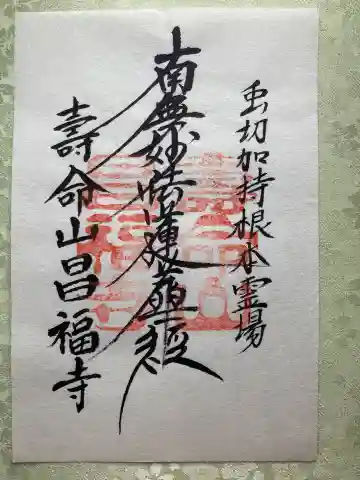 虫切加持根本霊場
南無妙法蓮華経
壽命山昌福寺